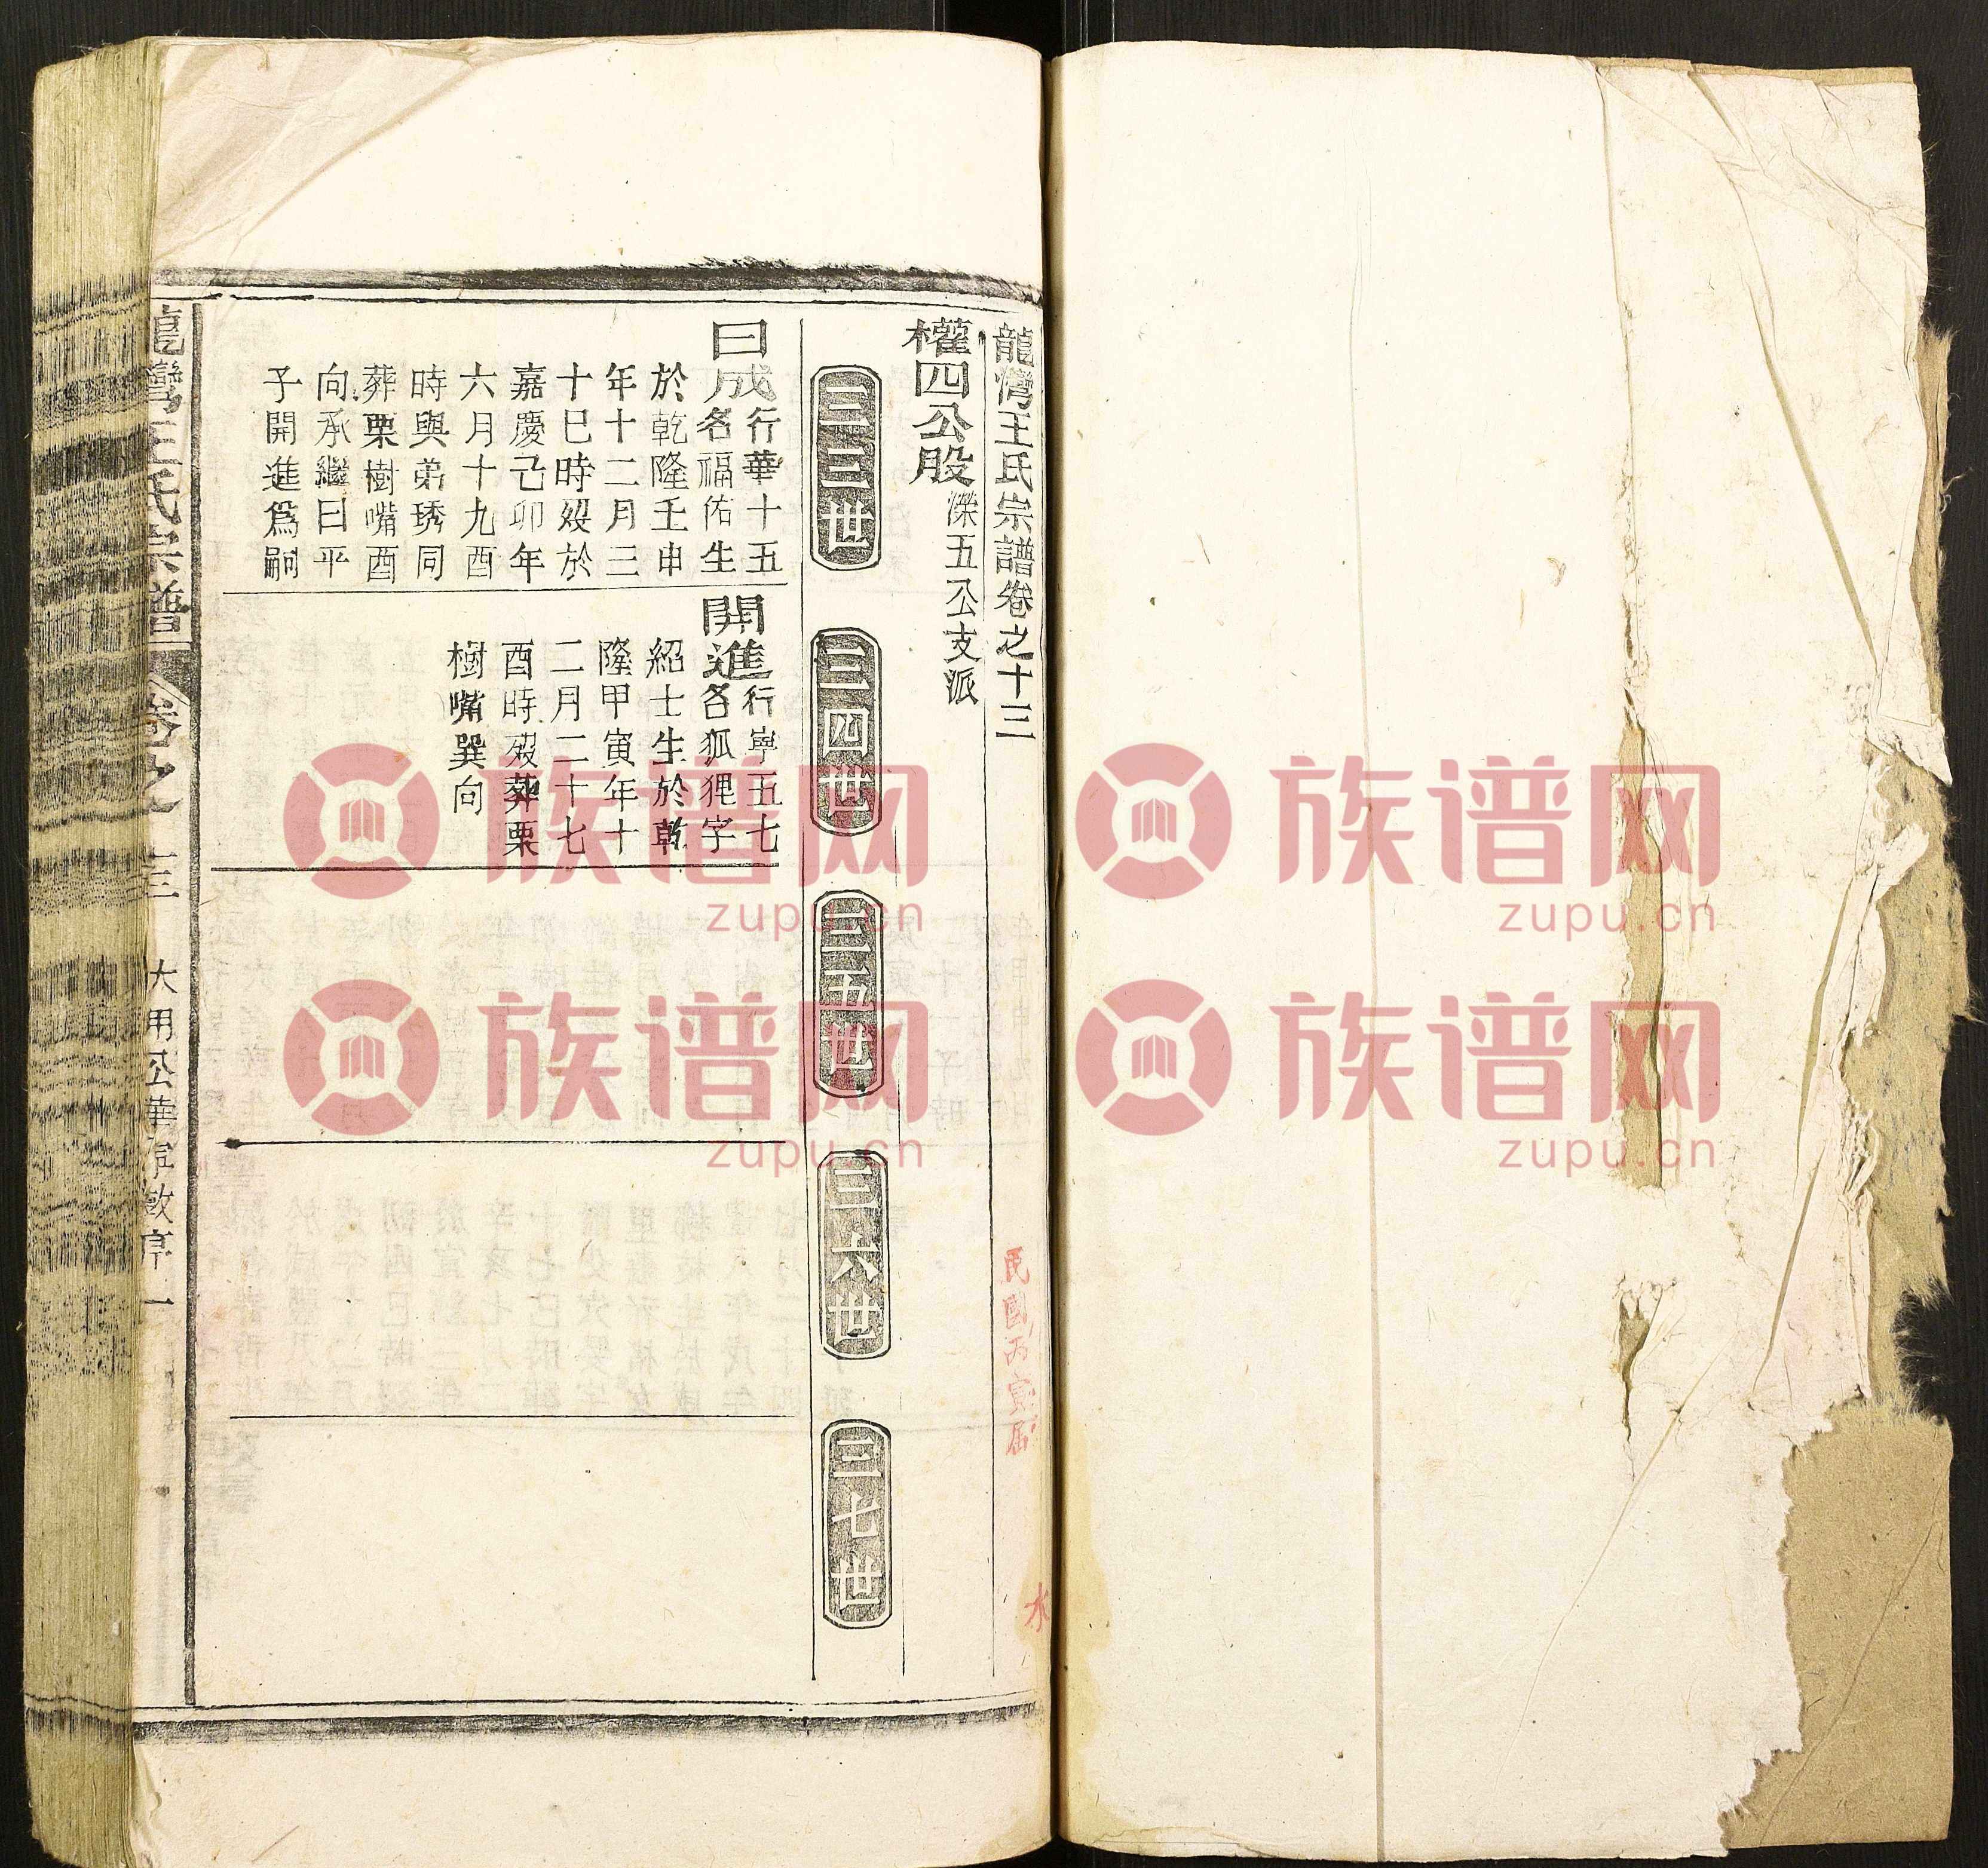 龍灣王氏宗譜卷之十三
權四公股
濼五公支派
三三世
三四世
三五世
三六世
三七世
曰成
行華十五
名福佑生
於乾隆壬申
年十二月三
十巳時歿於
嘉慶己卯年
六月十九酉
時與弟琇同
葬栗樹嘴酉
向承繼曰平
子開進爲嗣
開進
行寧五七
名狐狸字
紹士生於乾
隆甲寅年十
二月二十七
酉時歿葬栗
樹嘴巽向
龍灣王氏宗譜
卷之十三
大用公華寧敦享
一
民國丙寅屆
水
族谱网
zupu.cn
族谱网
zupu.cn
族谱网
zupu.cn
族谱网
zupu.cn